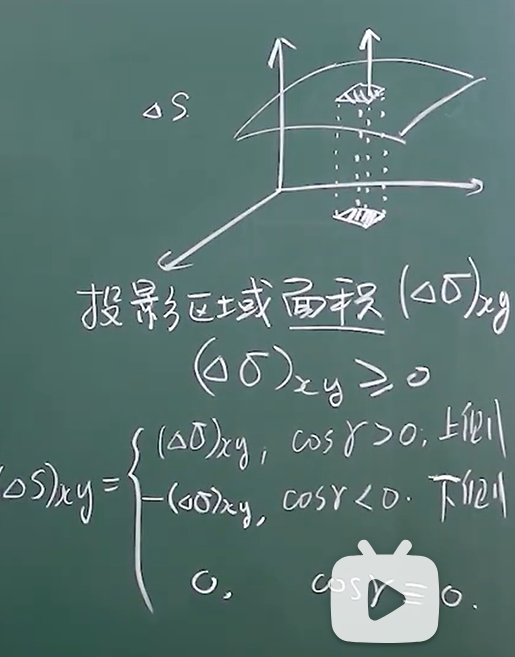 △S
投影区域面积 (△σ)xy
(△σ)xy ≥ 0
(△S)xy = { (△σ)xy, cosγ > 0, 上侧
-(△σ)xy, cosγ < 0. 下侧
0, cosγ ≡ 0.